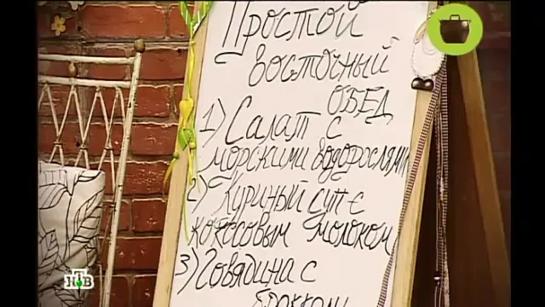 Простой
восточный
обед
1) Салат с
морскими водорослями
2) Куриный суп с
кокосовым молоком
3) Говядина с
брокколи
НТВ